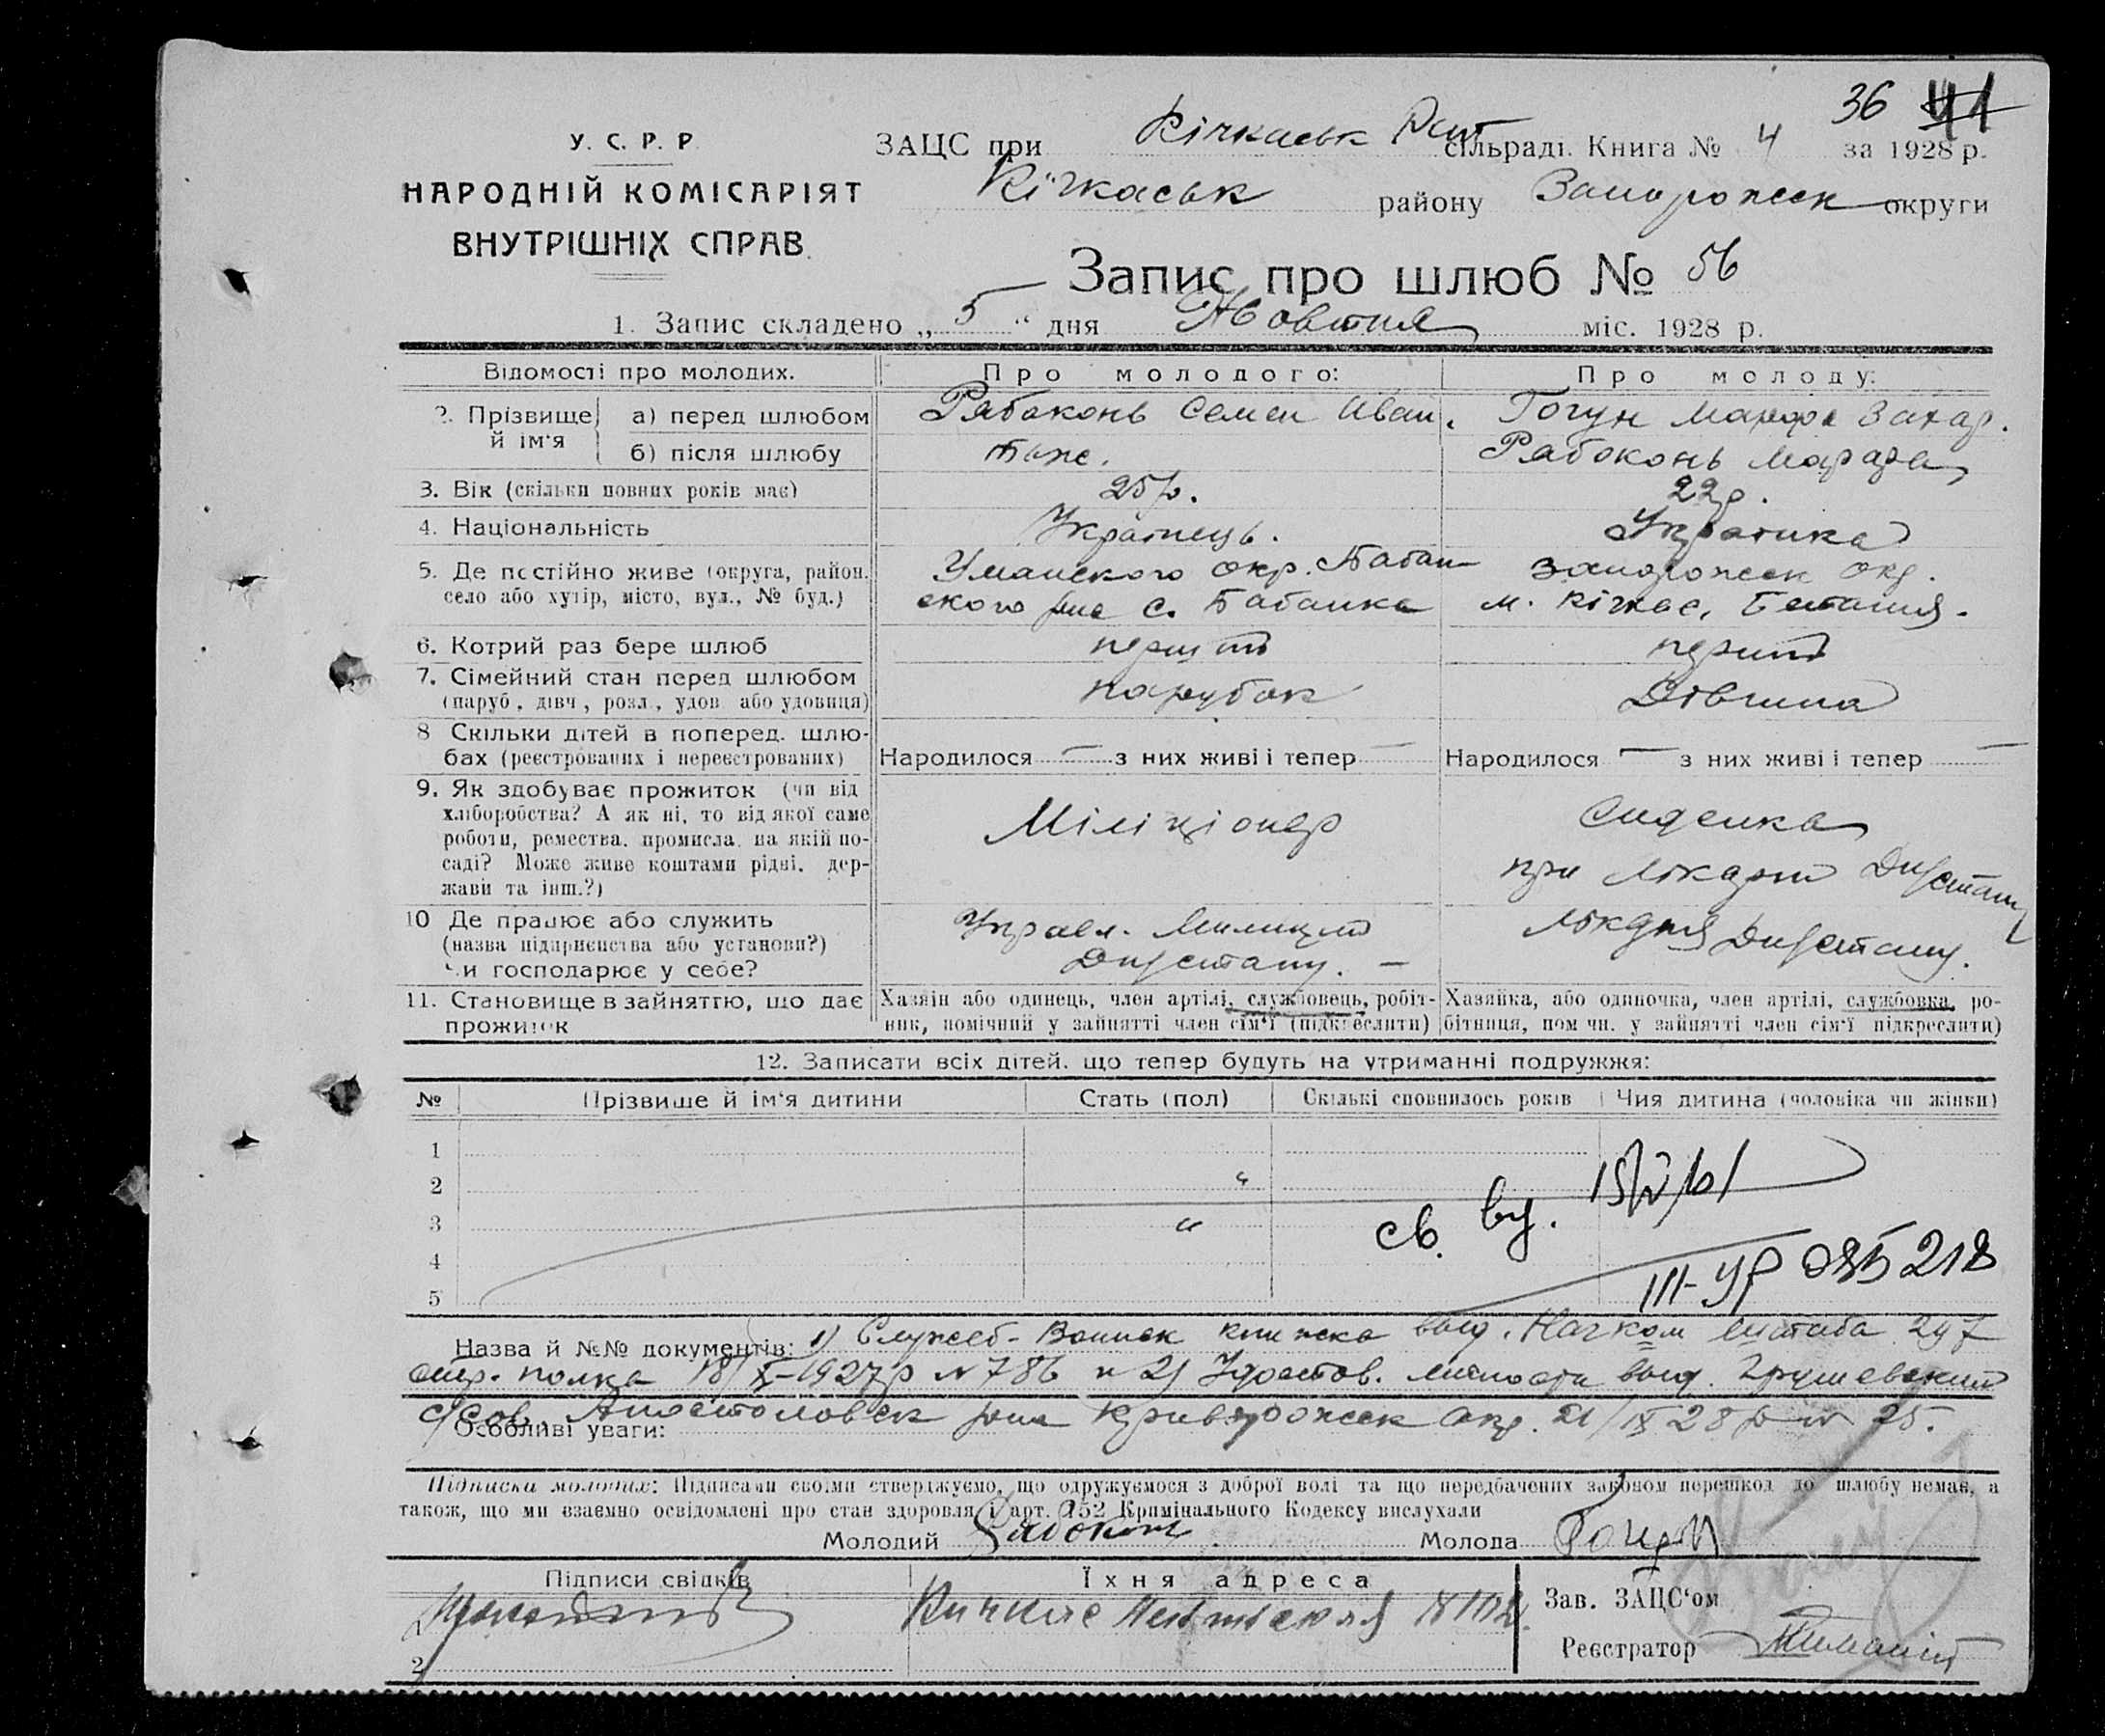 36 41
У. С. Р. Р
ЗАЦС при Кічкаськ Рай сільраді. Книга № 4 за 1928 р.
НАРОДНІЙ КОМІСАРІЯТ
Кічкаськ району Запорожск округи
ВНУТРІШНІХ СПРАВ.
Запис про шлюб № 56
1. Запис складено „ 5 “ дня Жовтня міс. 1928 р.
Відомості про молодих. Про молодого: Про молоду:
2. Прізвище й ім‘я а) перед шлюбом Рябоконь Семен Иван. Гогун Марфа Захар.
б) після шлюбу Тоже. Рябоконь Марфа
3. Вік (скільки повних років має) 25 р. 22 р.
4. Національність Українець. Українка
5. Де постійно живе (округа, район. Уманского окр. Бабан Запорожск окр.
село або хутір, місто, вул., № буд.) ского рна с. Бабанка м. Кічкас,
6. Котрий раз бере шлюб перший перший
7. Сімейний стан перед шлюбом парубок Дівчина
(паруб, дівч, розл., удов. або удовиця)
8 Скільки дітей в поперед. шлю-
бах (реєстрованих і нереєстрованих) Народилося — з них живі і тепер — Народилося — з них живі і тепер —
9. Як здобуває прожиток (чи від
хліборобства? А як ні, то від якої саме Міліціонер Сиделка
роботи, ремества, промисла, на якій по-
саді? Може живе коштами рідні, дер- при лікарні
жави та інш.?)
10 Де працює або служить Управл. Милиции лікарня
(назва підприємства або установи?)
чи господарює у себе?
11. Становище в зайняттю, що дає Хазяїн або одинець, член артілі, службовець, робіт- Хазяйка, або одиночка, член артілі, службовка, ро-
прожиток ник, помічний у зайнятті член сім‘ї (підкреслити) бітниця, помічн. у зайнятті член сім‘ї підкреслити)
12. Записати всіх дітей, що тепер будуть на утриманні подружжя:
№ Прізвище й ім‘я дитини Стать (пол) Скількі сповнилось років Чия дитина (чоловіка чи жінки)
1
2 “
3 “
св. 
4
III-УР 085218
5
Назва й №№ документів: 1) Служеб- Воинск книжка выд. Начком штаба 297
стр. полка 18/X-1927р № 786 и 2) Удостов. личности выд. Грушевский
с/сов. Апостоловск рна Криворожск окр. 21/IX 28 р № 25.
Особливі уваги:
Підписка молодих: Підписами своїми стверджуємо, що одружуємося з доброї волі та що передбачених законом перешкод до шлюбу немає, а
також, що ми взаємно освідомлені про стан здоровля і арт. 152 Кримінального Кодексу вислухали
Молодий Рябоконь Молода
Підписи свідків Їхня адреса
Зав. ЗАЦС‘ом
Кичкас
Реєстратор
2